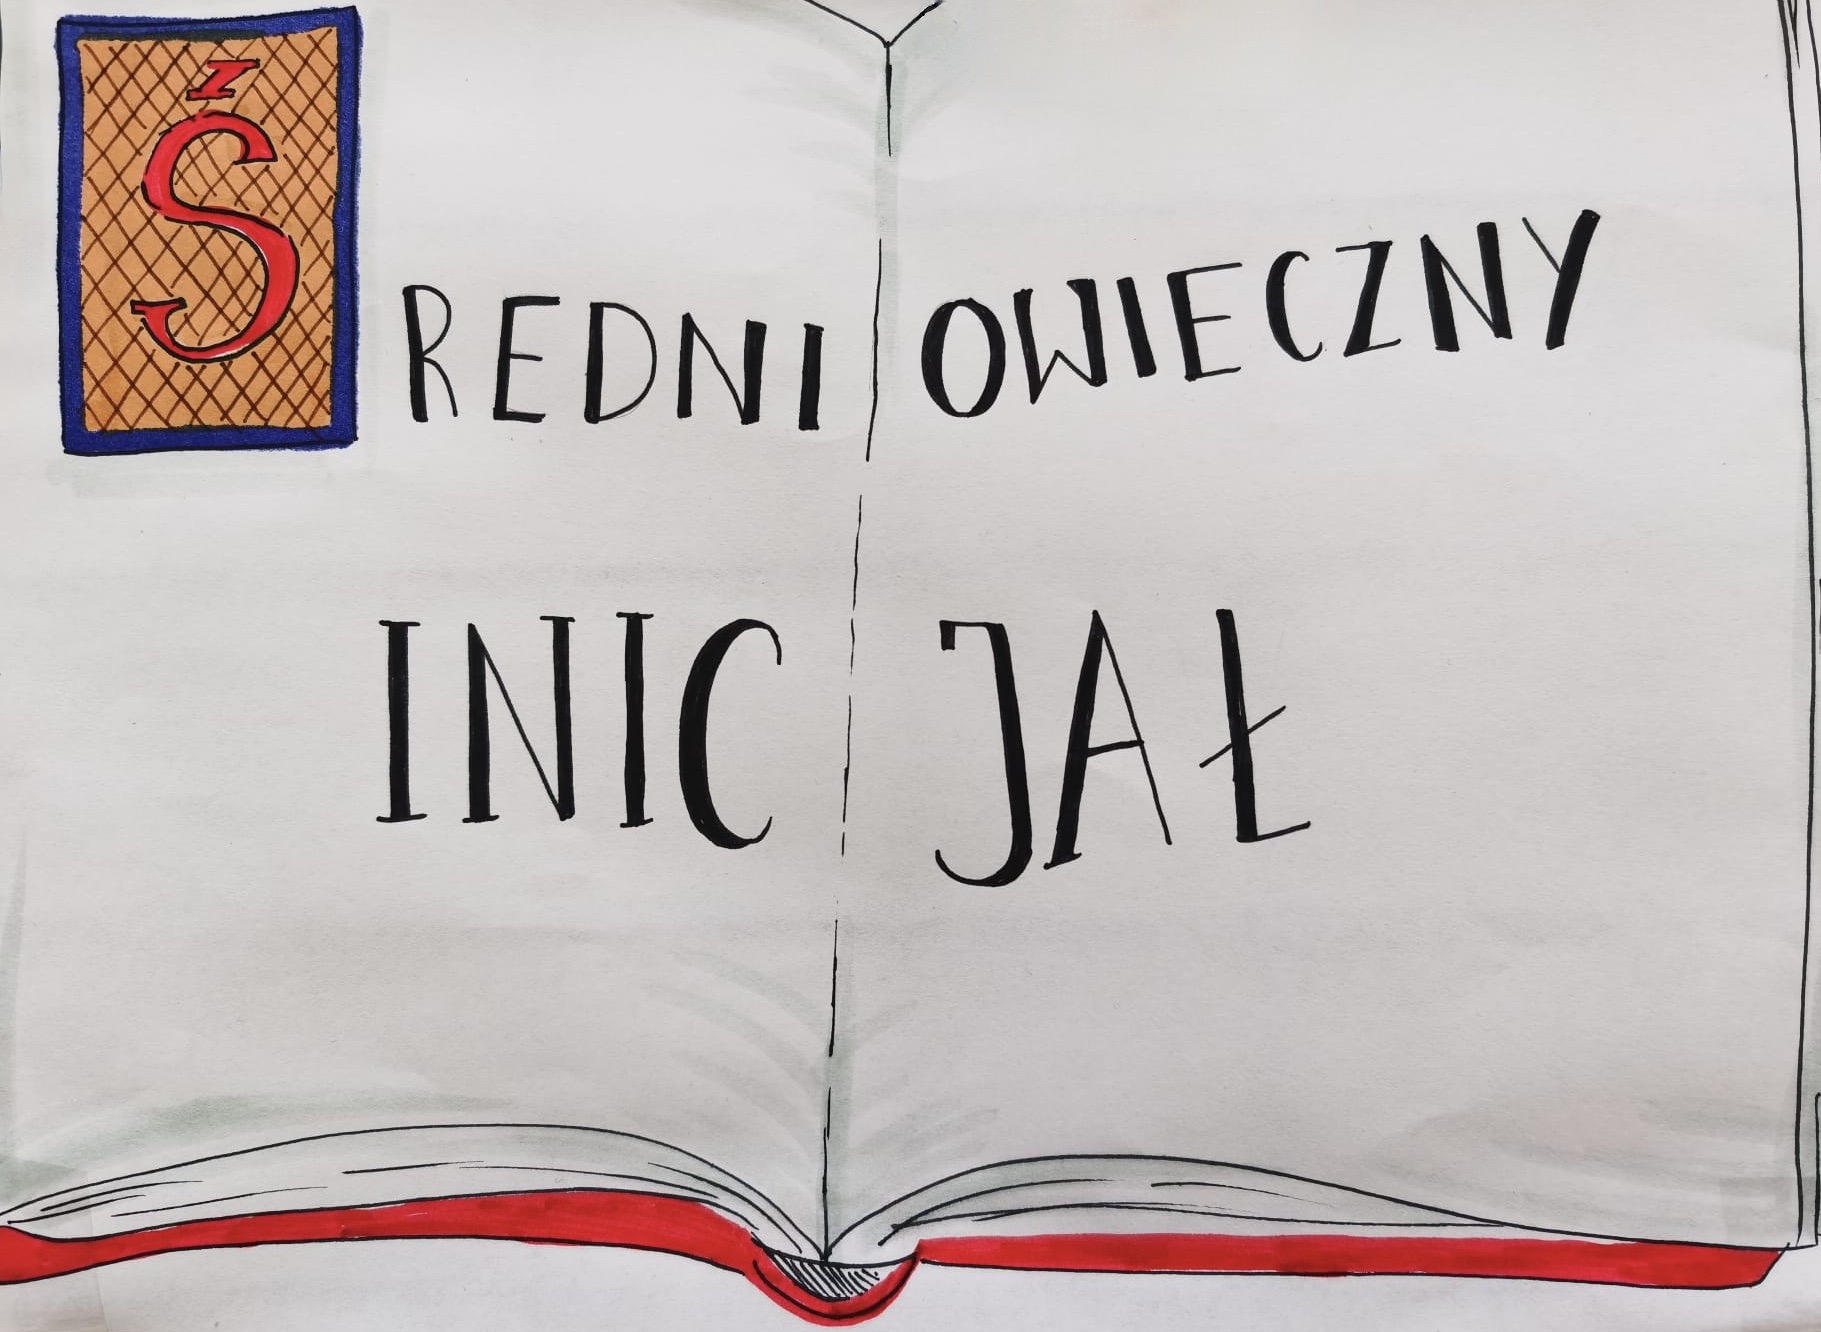 ŚREDNIOWIECZNY
INICJAŁ